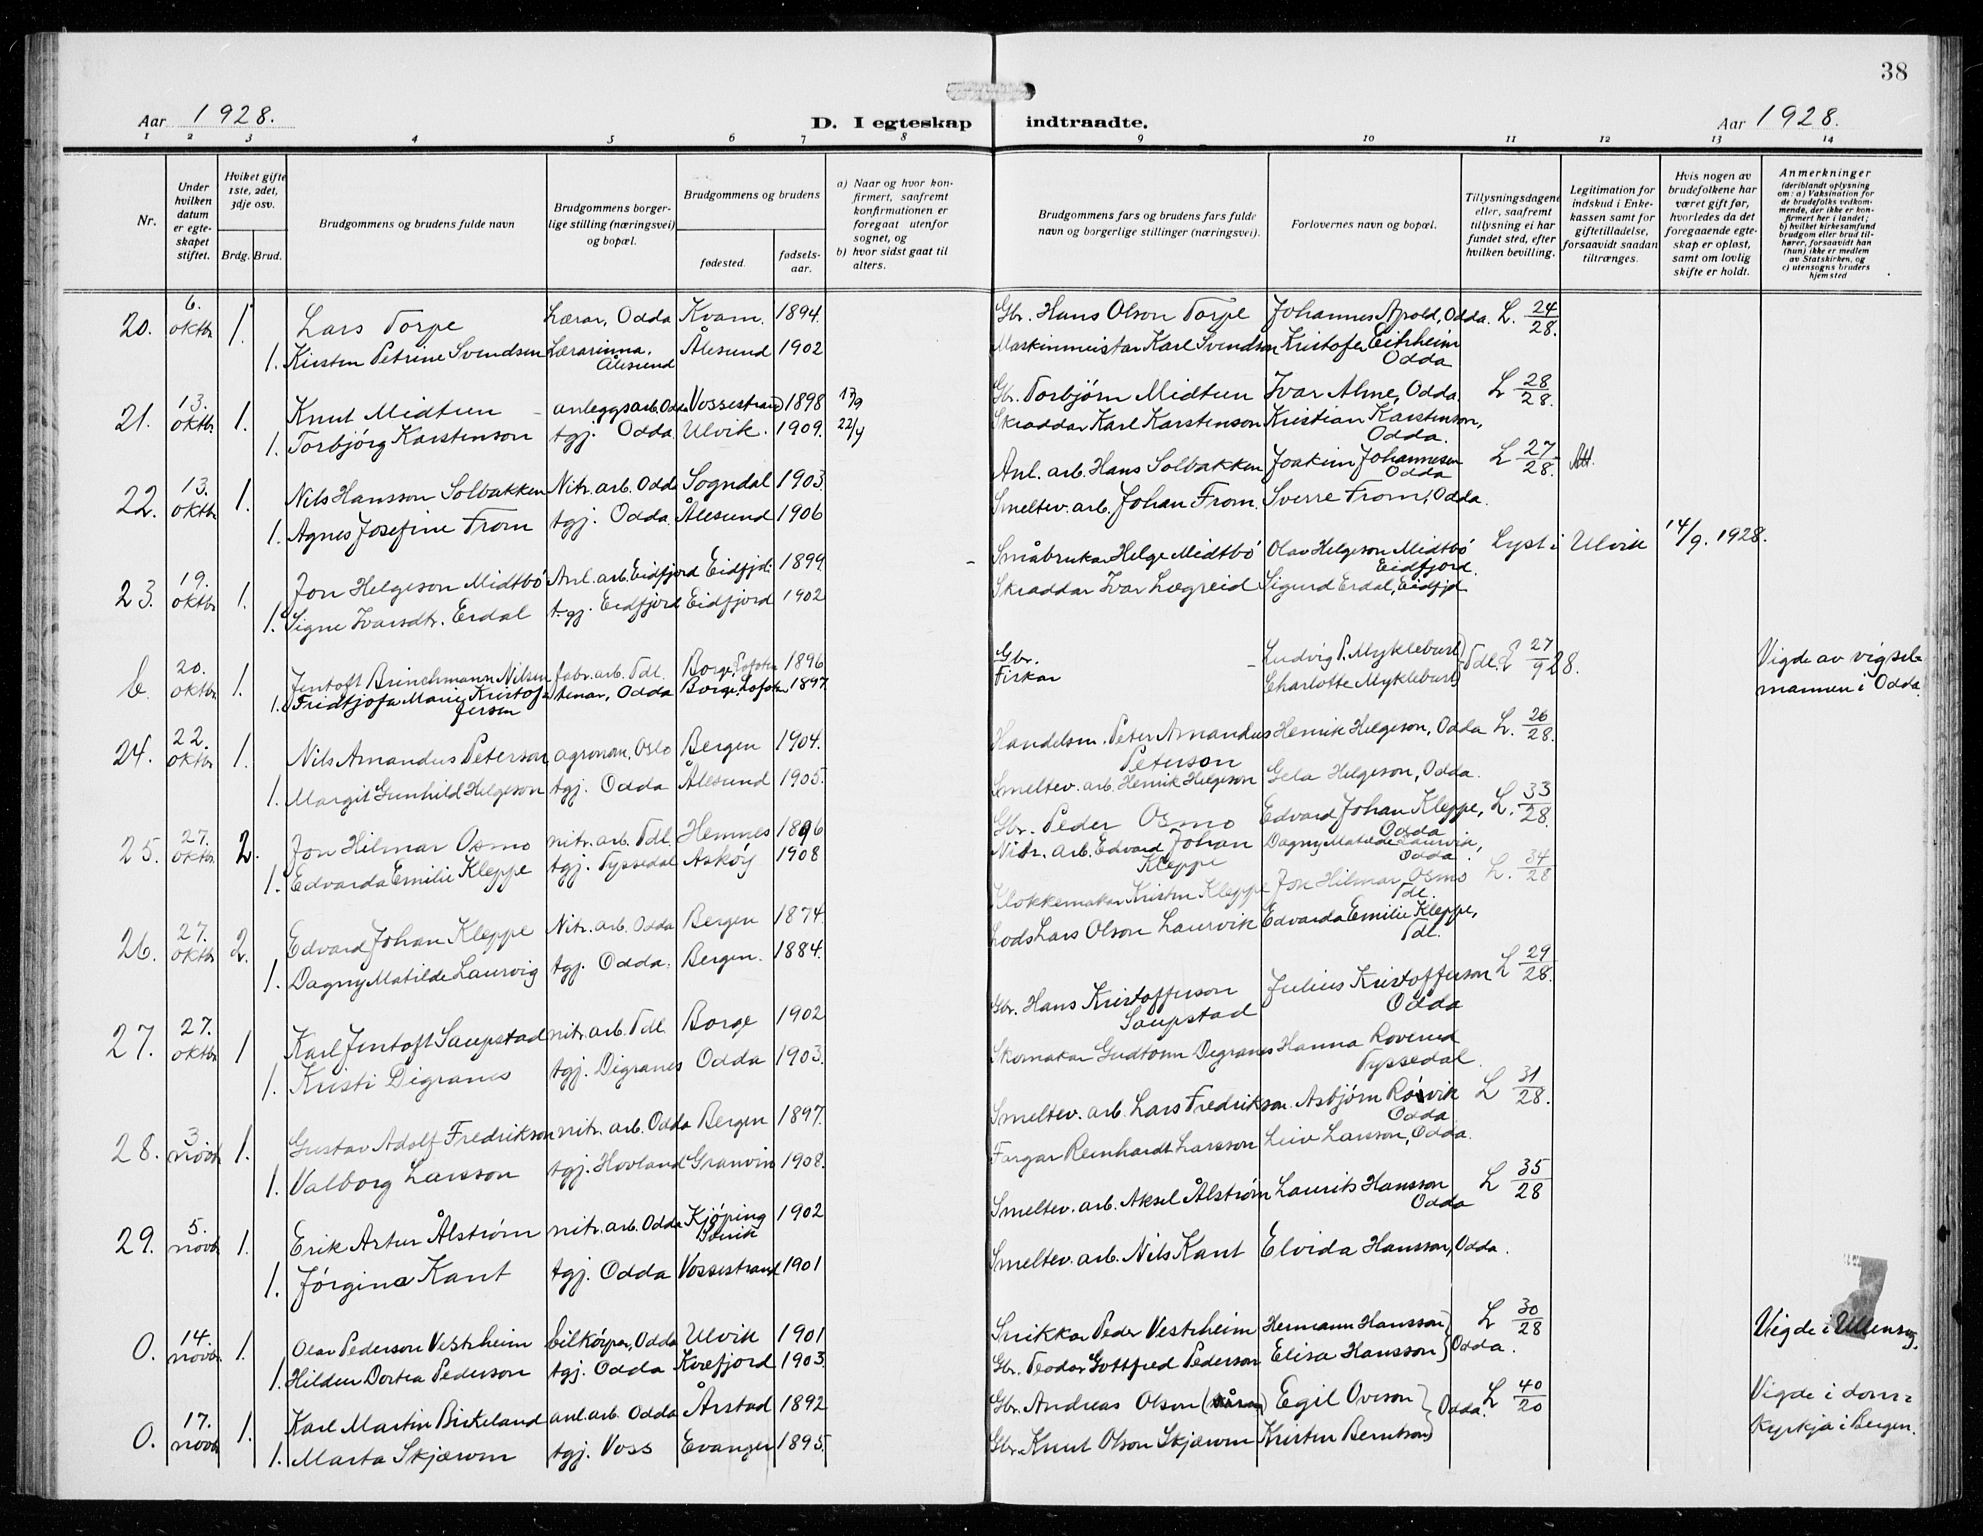 38
Aar 1928. D. I egteskap indtraadte. Aar 1928.
1 2 3 4 5 6 7 8 9 10 11 12 13 14
Nr.
Under hvilken datum er egteskapet stiftet.
Hviket gifte 1ste, 2det, 3dje osv.
Brdg. Brud.
Brudgommens og brudens fulde navn
Brudgommens borgerlige stilling (næringsvei) og bopæl.
Brudgommens og brudens
fødested.
fødselsaar.
a) Naar og hvor konfirmert, saafremt konfirmationen er foregaat utenfor sognet, og
b) hvor sidst gaat til alters.
Brudgommens fars og brudens fars fulde navn og borgerlige stillinger (næringsvei).
Forlovernes navn og bopæl.
Tillysningsdagene eller, saafremt tillysning ei har fundet sted, efter hvilken bevilling.
Legitimation for indskud i Enkekassen samt for giftetilladelse, forsaavidt saadan tiltrænges.
Hvis nogen av brudefolkene har været gift før, hvorledes da det foregaaende egteskap er opløst, samt om lovlig skifte er holdt.
Anmerkninger
(deriblandt oplysning om: a) Vaksination for de brudefolks vedkommende, der ikke er konfirmert her i landet; b) hvilket kirkesamfund brudgom eller brud tilhører, forsaavidt han (hun) ikke er medlem av Statskirken, og c) utensogns bruders hjemsted
20. 6. oktbr 1. Lars Torpe Lærar, Odda Kvam. 1894. Gbr. Hans Olson Torpe Johannes Apold, Odda. L. 24/28.
1. Kirsten Petrine Svendsen Lærarinna, Ålesund Ålesund 1902 Maskinmeistar Karl Svendsen Kristofer Eitrheim Odda
21. 13. oktbr 1. Knut Midtun anleggsarb. Odda Vossestrand 1898 17/9 Gbr. Torbjørn Midtun Ivar Alme, Odda. L 28/28.
1. Torbjörg Karstenson tgj. Odda. Ulvik. 1909. 22/4 Skraddar Karl Karstenson Kristian Karstenson, Odda.
22. 13. oktbr 1. Nils Hansson Solbakken Nitr. arb. Odda Sogndal 1903. Anl. arb. Hans Solbakken Joakim Johannesen Odda L 27/28. Att.
1. Agnes Josefine From tgj. Odda. Ålesund 1906 Smeltev. arb. Johan From. Sverre From, Odda.
23. 19. oktbr 1. Jon Helgeson Midtbö Anl. arb. Eidfjord Eidfjd. 1899. Småbrukar Helge Midtbö Olav Helgeson Midtbö Eidfjord. Lyst i Ulvik 14/9. 1928.
1. Signe Ivarsdtr. Erdal tgj. Eidfjord Eidfjord 1902 Skraddar Ivar Lægreid Sigurd Erdal, Eidfjd
b. 20. oktbr 1. Jentoft Brinchmann Nilsen fabr. arb. Tdl. Borge, Lofoten 1896 Gbr. Ludvig P. Myklebust Tdl. 27/9 28. Vigde av vigselsmannen i Odda.
1. Fridtjofa Marie Kristofersen tenar, Odda Borge, Lofoten 1897. Fiskar Charlotte Myklebust
24. 22. oktbr 1. Nils Amandus Peterson agronom, Oslo Bergen 1904. Handelsm. Peter Amandus Peterson Henrik Helgeson, Odda L. 26/28.
1. Margit Gunhild Helgeson tgj. Odda Ålesund 1905. Smeltev. arb. Henrik Helgeson Gela Helgeson, Odda.
25. 27. oktbr 2. Jon Hilmar Osmo nitr. arb. Tdl. Hemnes 1896 Gbr. Peder Osmo Edvard Johan Kleppe, Odda L. 33/28.
1. Edvarda Emilie Kleppe tgj. Tyssedal Asköy 1908 Nitr. arb. Edvard Johan Kleppe Dagny Matilde Laurvik, Odda.
26. 27. oktbr 2. Edvard Johan Kleppe Nitr. arb. Odda Bergen 1874. Klokkemakar Kristen Kleppe Jon Hilmar Osmo Tdl. L. 34/28
1. Dagny Matilde Laurvig tgj. Odda. Bergen. 1884. Lods Lars Olson Laurvik Edvarda Emilie Kleppe, Tdl.
27. 27. oktbr 1 Karl Jentoft Saupstad nitr. arb. Tdl. Borge 1902 Gbr. Hans Kristofferson Saupstad Julius Kristofferson Odda L 29/28.
1. Kristi Digranes tgj. Digranes Odda 1903. Skomakar Gudtorm Digranes Hanna Rovened Tyssedal.
28. 3 novbr 1. Gustav Adolf Fredrikson nitr. arb. Odda Bergen 1897. Smeltev. arb. Lars Fredrikson. Asbjörn Rövik Odda L 31/28.
1. Valborg Larsson tgj. Hovland Granvin 1908. Fargar Reinhardt Larsson Leiv Larsson, Odda.
29. 5. novbr 1. Erik Artur Ålström nitr. arb. Odda Kjöping 1902 Smeltev. arb. Aksel Ålström Laurits Hansson Odda L 35/28
1. Jörgina Kant tgj. Odda Vossestrand 1901 Smeltev. arb. Nils Kant Elvida Hansson, Odda.
O. 14. novbr 1. Olav Pederson Vestrheim bilköyrar, Odda Ulvik 1901 Snikkar Peder Vestrheim Hermann Hansson L 30/28 Vigde i Ullensvg.
1. Hildur Dortea Pederson tgj. Odda Kvæfjord 1903. Gbr. Teodor Gottfred Pederson Elisa Hansson Odda.
O. 17. novbr 1. Karl Martin Birkeland anl. arb. Odda Årstad 1892 Gbr. Andreas Olson Egil Overson Odda. L 40/20 Vigde i domkyrkja i Bergen.
1. Marta Skjærven tgj. Voss Evanger 1895. Gbr. Knut Olson Skjærven Kristen Berntson